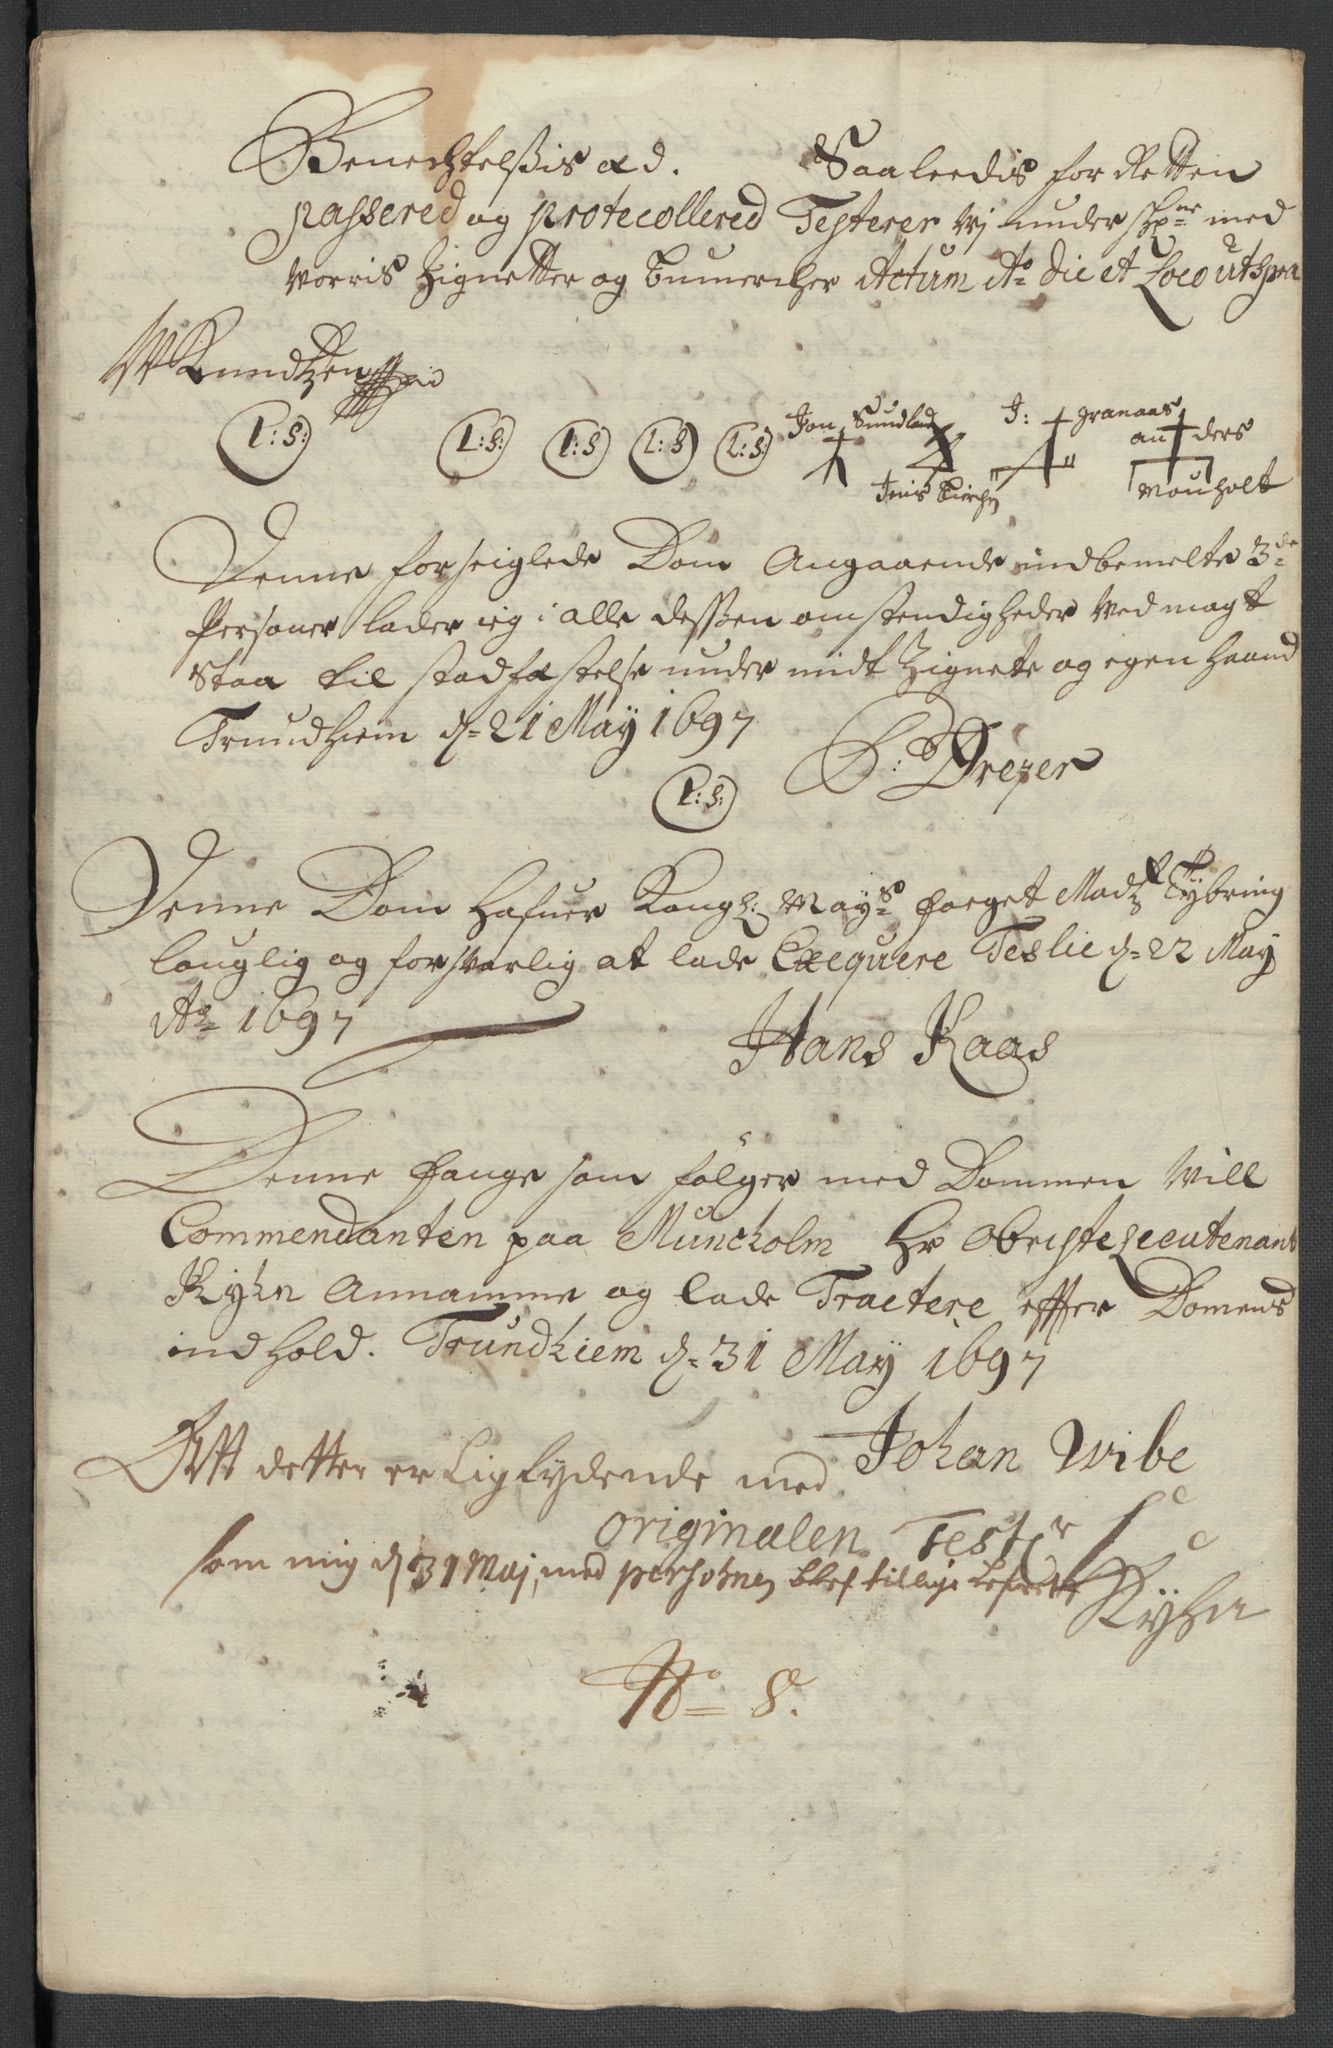 Benechtelßis ad. Saaleedis for Retten
passered og protecollered Testerer Wj under shr med
Worris Zignetter og bumercher Actum Ao die et Loco ut spra
W Knudtzen
L:S: L:S: L:S L:S L:S: Jon Sundlad J: granaas
an ders
Jenis Kirchn Mouholt
Denne forseiglede Dom Angaaende indbemelte 3de
Persaner lader ieg i alle desßen omstendigheder Ved magt
Staa til stadfæstelse under midt Zignete og egen haand
Trundhiem d= 21 May 1697
D: Dreyer
L:S:
Denne Dom Hafuer Kongl: Mayts foeget Madtz Tybring
louglig og forsvarlig at lade Exequere Teslie d= 22 May
Ao 1697
Hans Kaas
Denne fange som fölger med Dommen Will
Commendanten paa Munckholm Hr Obriste Leeutenant
Kyhn Annamme og lade Tractere effter Domens
indhold. Trundhiem d= 31 May 1697
Johan Wibe
Att detter er Liglydende med
originalen Testr
som mig d 31 Maj, med persohnen blef tillige
Kÿhn
No 8.